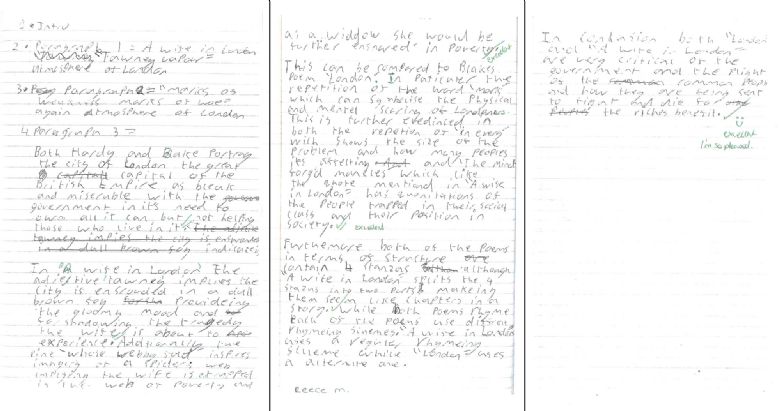 1 • Intro
2 • Paragraph 1 = A wife in London
tawney vapour
atmosphere of London
3 • Paragraph 2 = "marks of
weakness marks of woe"
again atmosphere of London
4 Paragraph 3 =
Both Hardy and Blake Portray
the city of London the great
capital of the
British Empire as bleak
and miserable with the
government in its need to
own all it can, but not helping
those who live in it.
tawney implies the city is enshrouded
in a dull brown fog
In "A wife in London" the
adjective tawney implies the
city is enscroded in a dull
brown fog Provideing
the gloomy mood and
for shadowing the tragedy
the wife is about to
experience. Additionally the
line "whose webby
imagery of a spiders web
the wife is
in the web of poverty and
as a widdow she would be
further ensnared in Poverty
excellent
This can be compared to Blakes
Poem "London". In Paticular the
repetition of the word "mark"
which can symbolise the Physical
and mental scaring of Londoners.
This is further evedinced in
both the repetion of in every
wich shows the size of the
Problem and how many Peoples
its affecting and "The mind
forgd manicles" which like
the quote mentiond in "A wife
in London" has conotations of
the People trapped in their social
class and their Position in
society.
excellent
Furthemore both of the Poems
in terms of structure
contain 4 stanzas although
"A wife in London" splits the 4
stazas into two Parts makeing
them seem like chapters in a
story. While both Poems rhyme
each of the poems use different
rhymeing "A wife in London"
uses a regular rhymeing
scheme while "London" uses
a alternate one.
Reece M.
In conclusion both "London
and "A wife in London"
are very critical of the
government and the Plight
of the common Peops
and how they are being sent
to fight and die for
the riches benefit.
excellent
I'm so pleased.